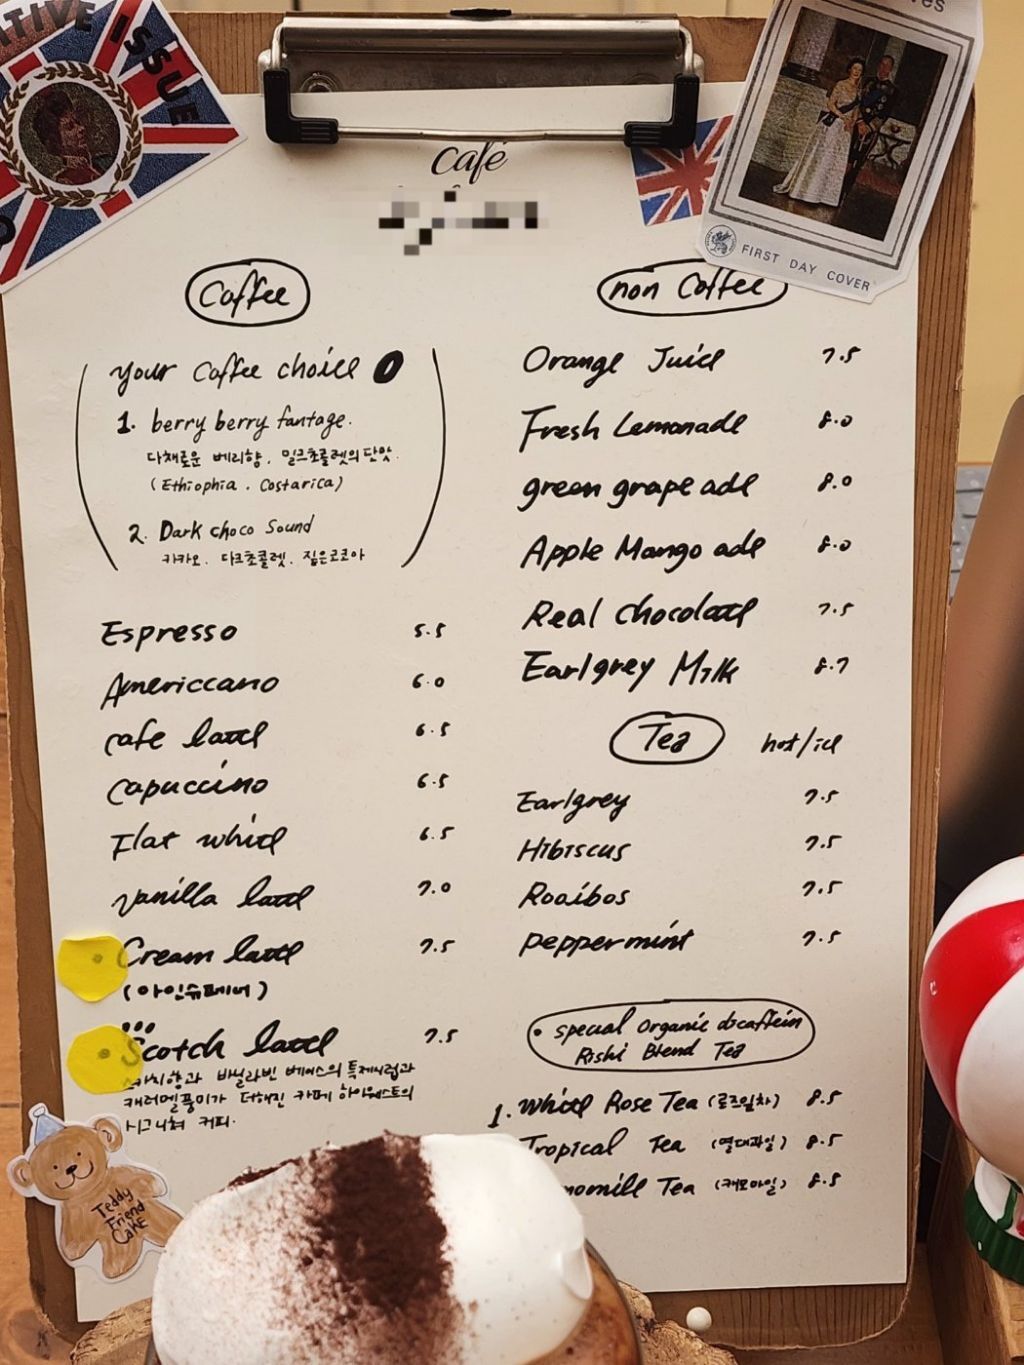 ATIVE ISSUE
FIRST DAY COVER
café
Coffee
your coffee choice
1. berry berry fantage.
다채로운 베리향, 밀크초콜렛의 단맛.
(Ethiophia. Costarica)
2. Dark choco Sound
카카오. 다크초콜렛. 짙은코코아
Espresso 5.5
Americcano 6.0
cafe latte 6.5
capuccino 6.5
Flat white 6.5
vanilla latte 7.0
Cream latte 7.5
(아인슈페너)
Scotch latte 7.5
스카치향과 바닐라빈 베이스의 특제시럽과
캐러멜풍미가 더해진 카페 하이웨스트의
시그니쳐 커피.
Teddy
Friend
Cake
non Coffee
Orange Juice 7.5
Fresh Lemonade 8.0
green grape ade 8.0
Apple Mango ade 8.0
Real chocolate 7.5
Earlgrey Milk 8.7
Tea hot/ice
Earlgrey 7.5
Hibiscus 7.5
Rooibos 7.5
peppermint 7.5
• special organic dacaffein
Rishi Blend Tea
1. white Rose Tea (로즈잎차) 8.5
Tropical Tea (열대과일) 8.5
momill Tea (캐모마일) 8.5